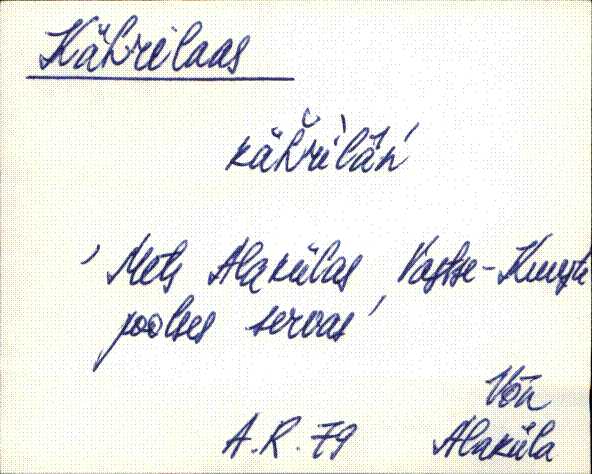 Kährilaas
kähřilä̀ń
' Mets Alakülas, Vastse-Kuuste
poolses servas '
Võn
A.R. 79 Alaküla